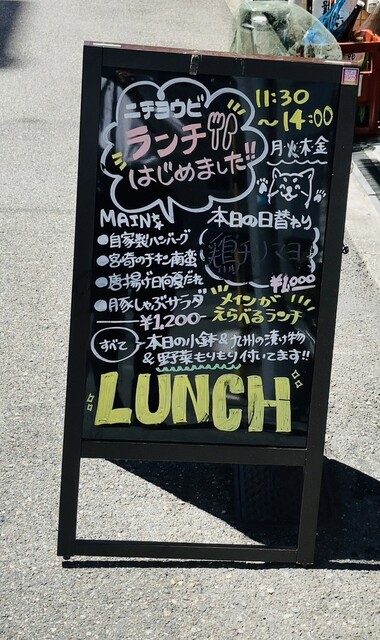 ニチヨウビ
ランチ
はじめました!!
11:30
～14:00
月火木金
MAINは
本日の日替わり
●自家製ハンバーグ
●宮崎のチキン南蛮
●唐揚げ日向夏だれ
●豚しゃぶサラダ
¥1,200-
鶏チリマヨ
¥1,000
メインが
えらべるランチ
すべて
本日の小鉢&九州の漬け物
&野菜もりもり付いてます!!
LUNCH